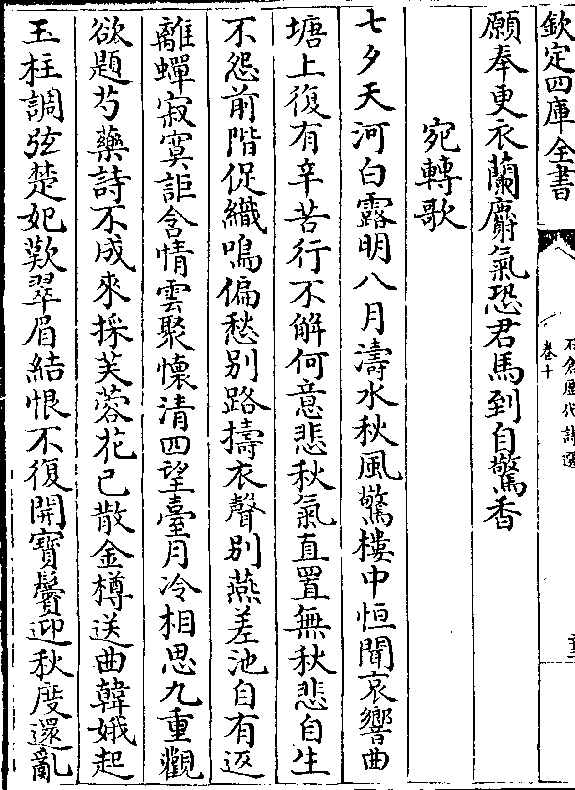 欽定四庫全書
石倉歷代詩選
卷十
願奉更衣蘭麝氣恐君馬到自驚香
宛轉歌
七夕天河白露明八月濤水秋風驚樓中恒聞哀響曲
塘上復有辛苦行不解何意悲秋氣直置無秋悲自生
不怨前階促織鳴偏愁别路擣衣聲别燕差池自有返
離蟬寂寞詎含情雲聚懷清四望臺月冷相思九重觀
欲題芍藥詩不成來採芙蓉花已散金樽送曲韓娥起
玉柱調弦楚妃歎翠眉結恨不復開寶鬢迎秋度還亂